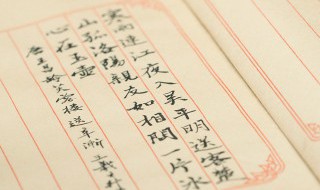 寒雨連江夜入吴平明送客楚
山孤洛陽親友如相問一片氷
心在玉壺
唐王昌齡芙蓉楼送辛漸